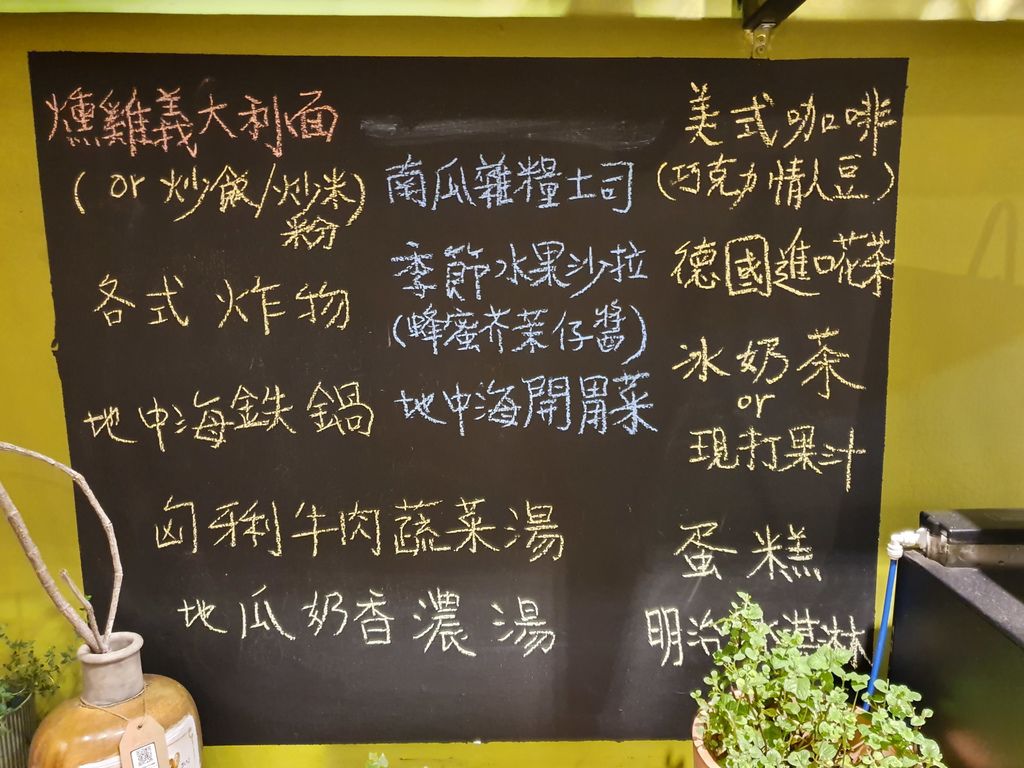 燻雞義大利面
(or 炒飯/炒米
粉)
各式炸物
地中海鉄鍋
匈牙利牛肉蔬菜湯
地瓜奶香濃湯
南瓜雜糧土司
季節水果沙拉
(蜂蜜芥茉仔醬)
地中海開胃菜
美式咖啡
(巧克力情人豆)
德國進口花茶
冰奶茶
or
現打果汁
蛋糕
明治淇淋